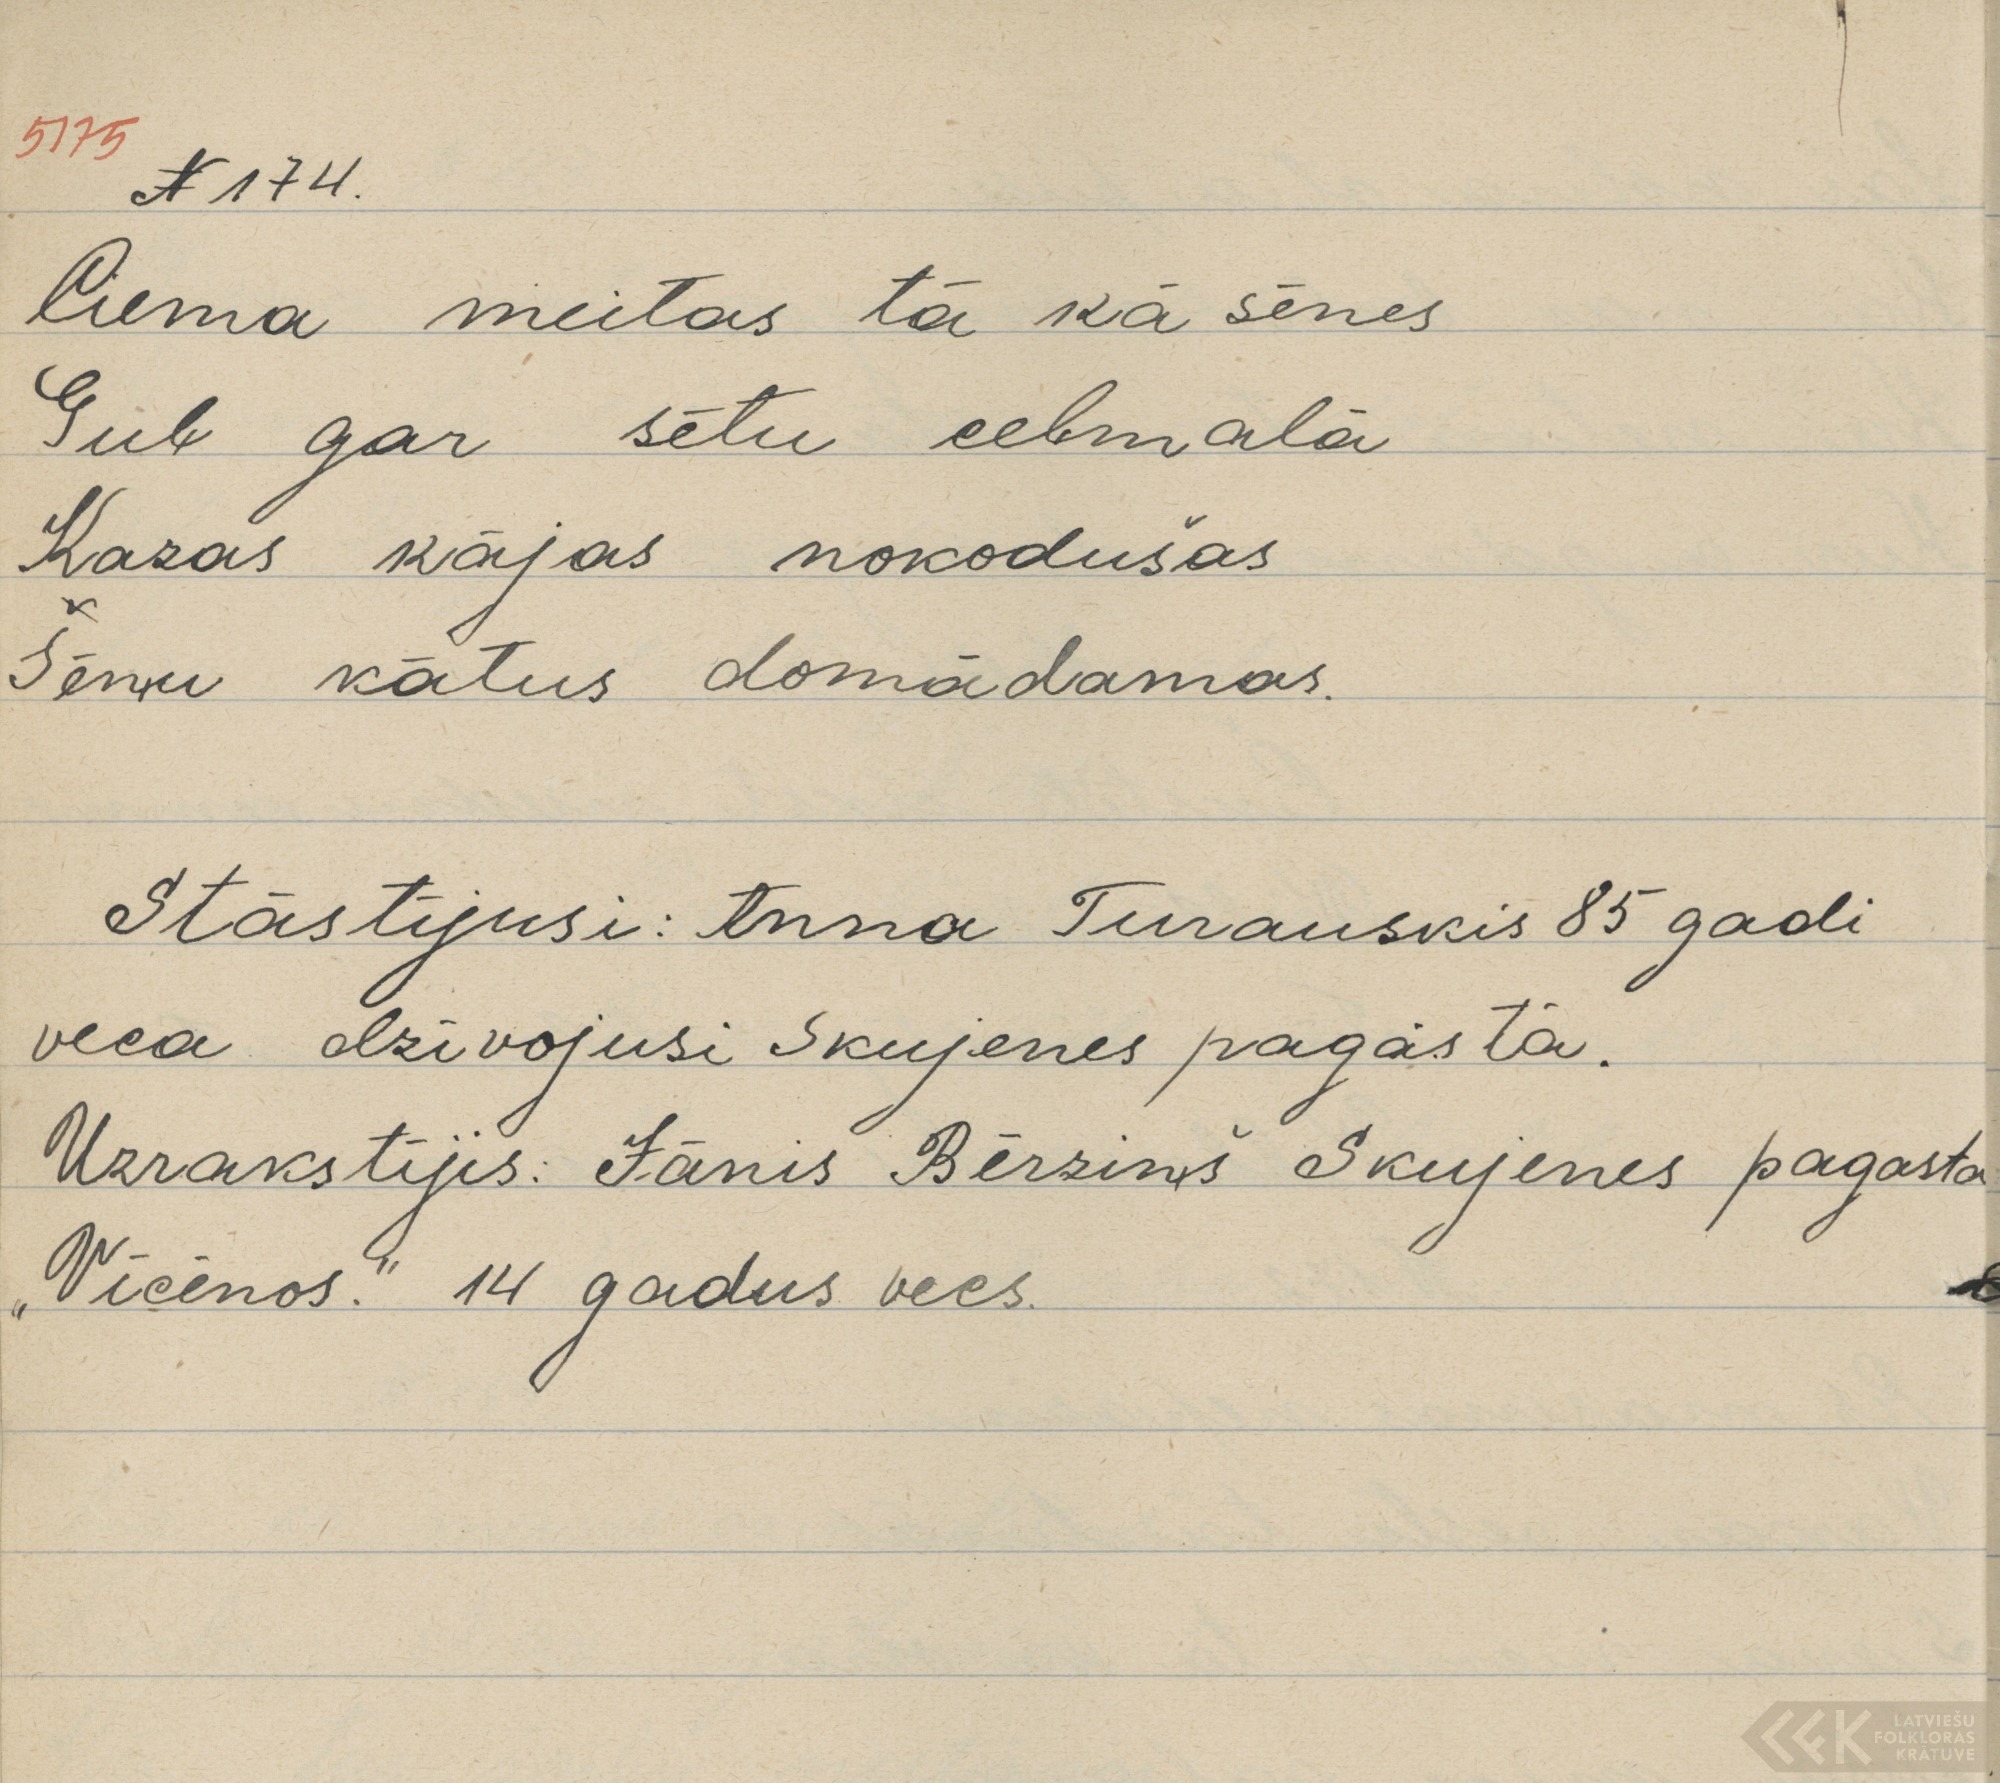 5175
N 174.
Ciema meitas tā kā sēnes
Gub gar sētu ceļmalā
Kazas kājas nokodušas
Šēņu kātus domādamas.
Stāstījusi: Anna Turauskis 85 gadi
veca dzīvojusi Skujenes pagastā.
Uzrakstījis: Jānis Bērziņš Skujenes pagasta
„Vīcēnos.“ 14 gadus vecs.
LATVIEŠU
FOLKLORAS
KRĀTUVE